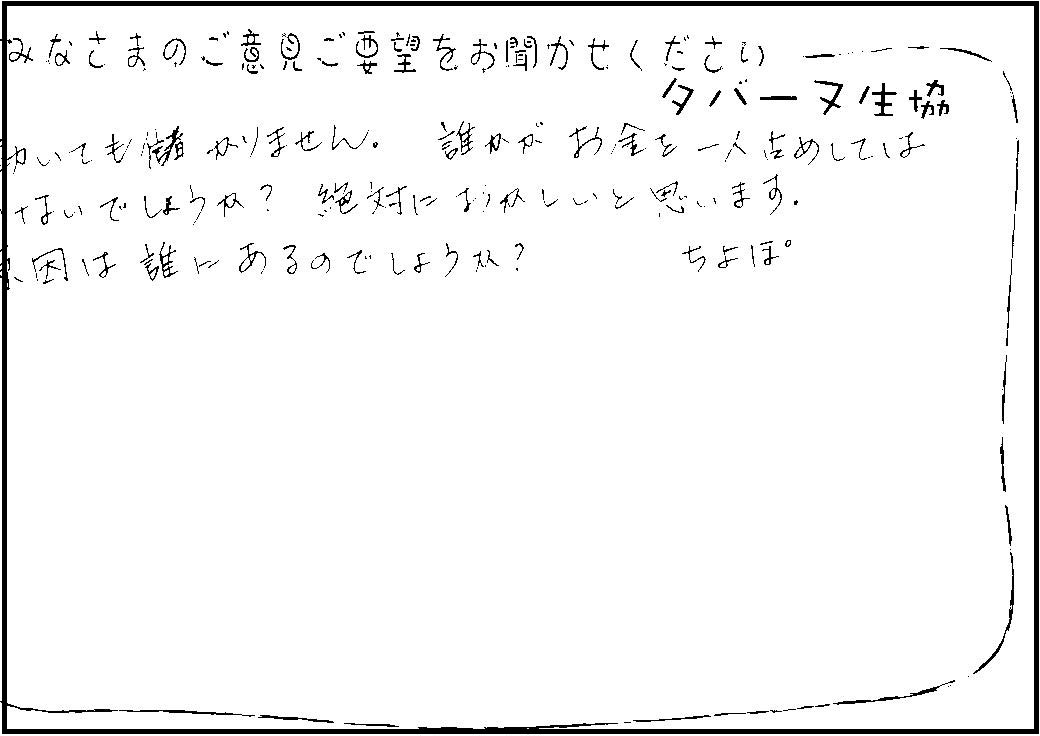 みなさまのご意見ご要望をお聞かせください
タバーヌ生協
動いても儲かりません。 誰かがお金を一人占めしては
いけないでしょうか? 絶対におかしいと思います.
原因は誰にあるのでしょうか? ちよぽ